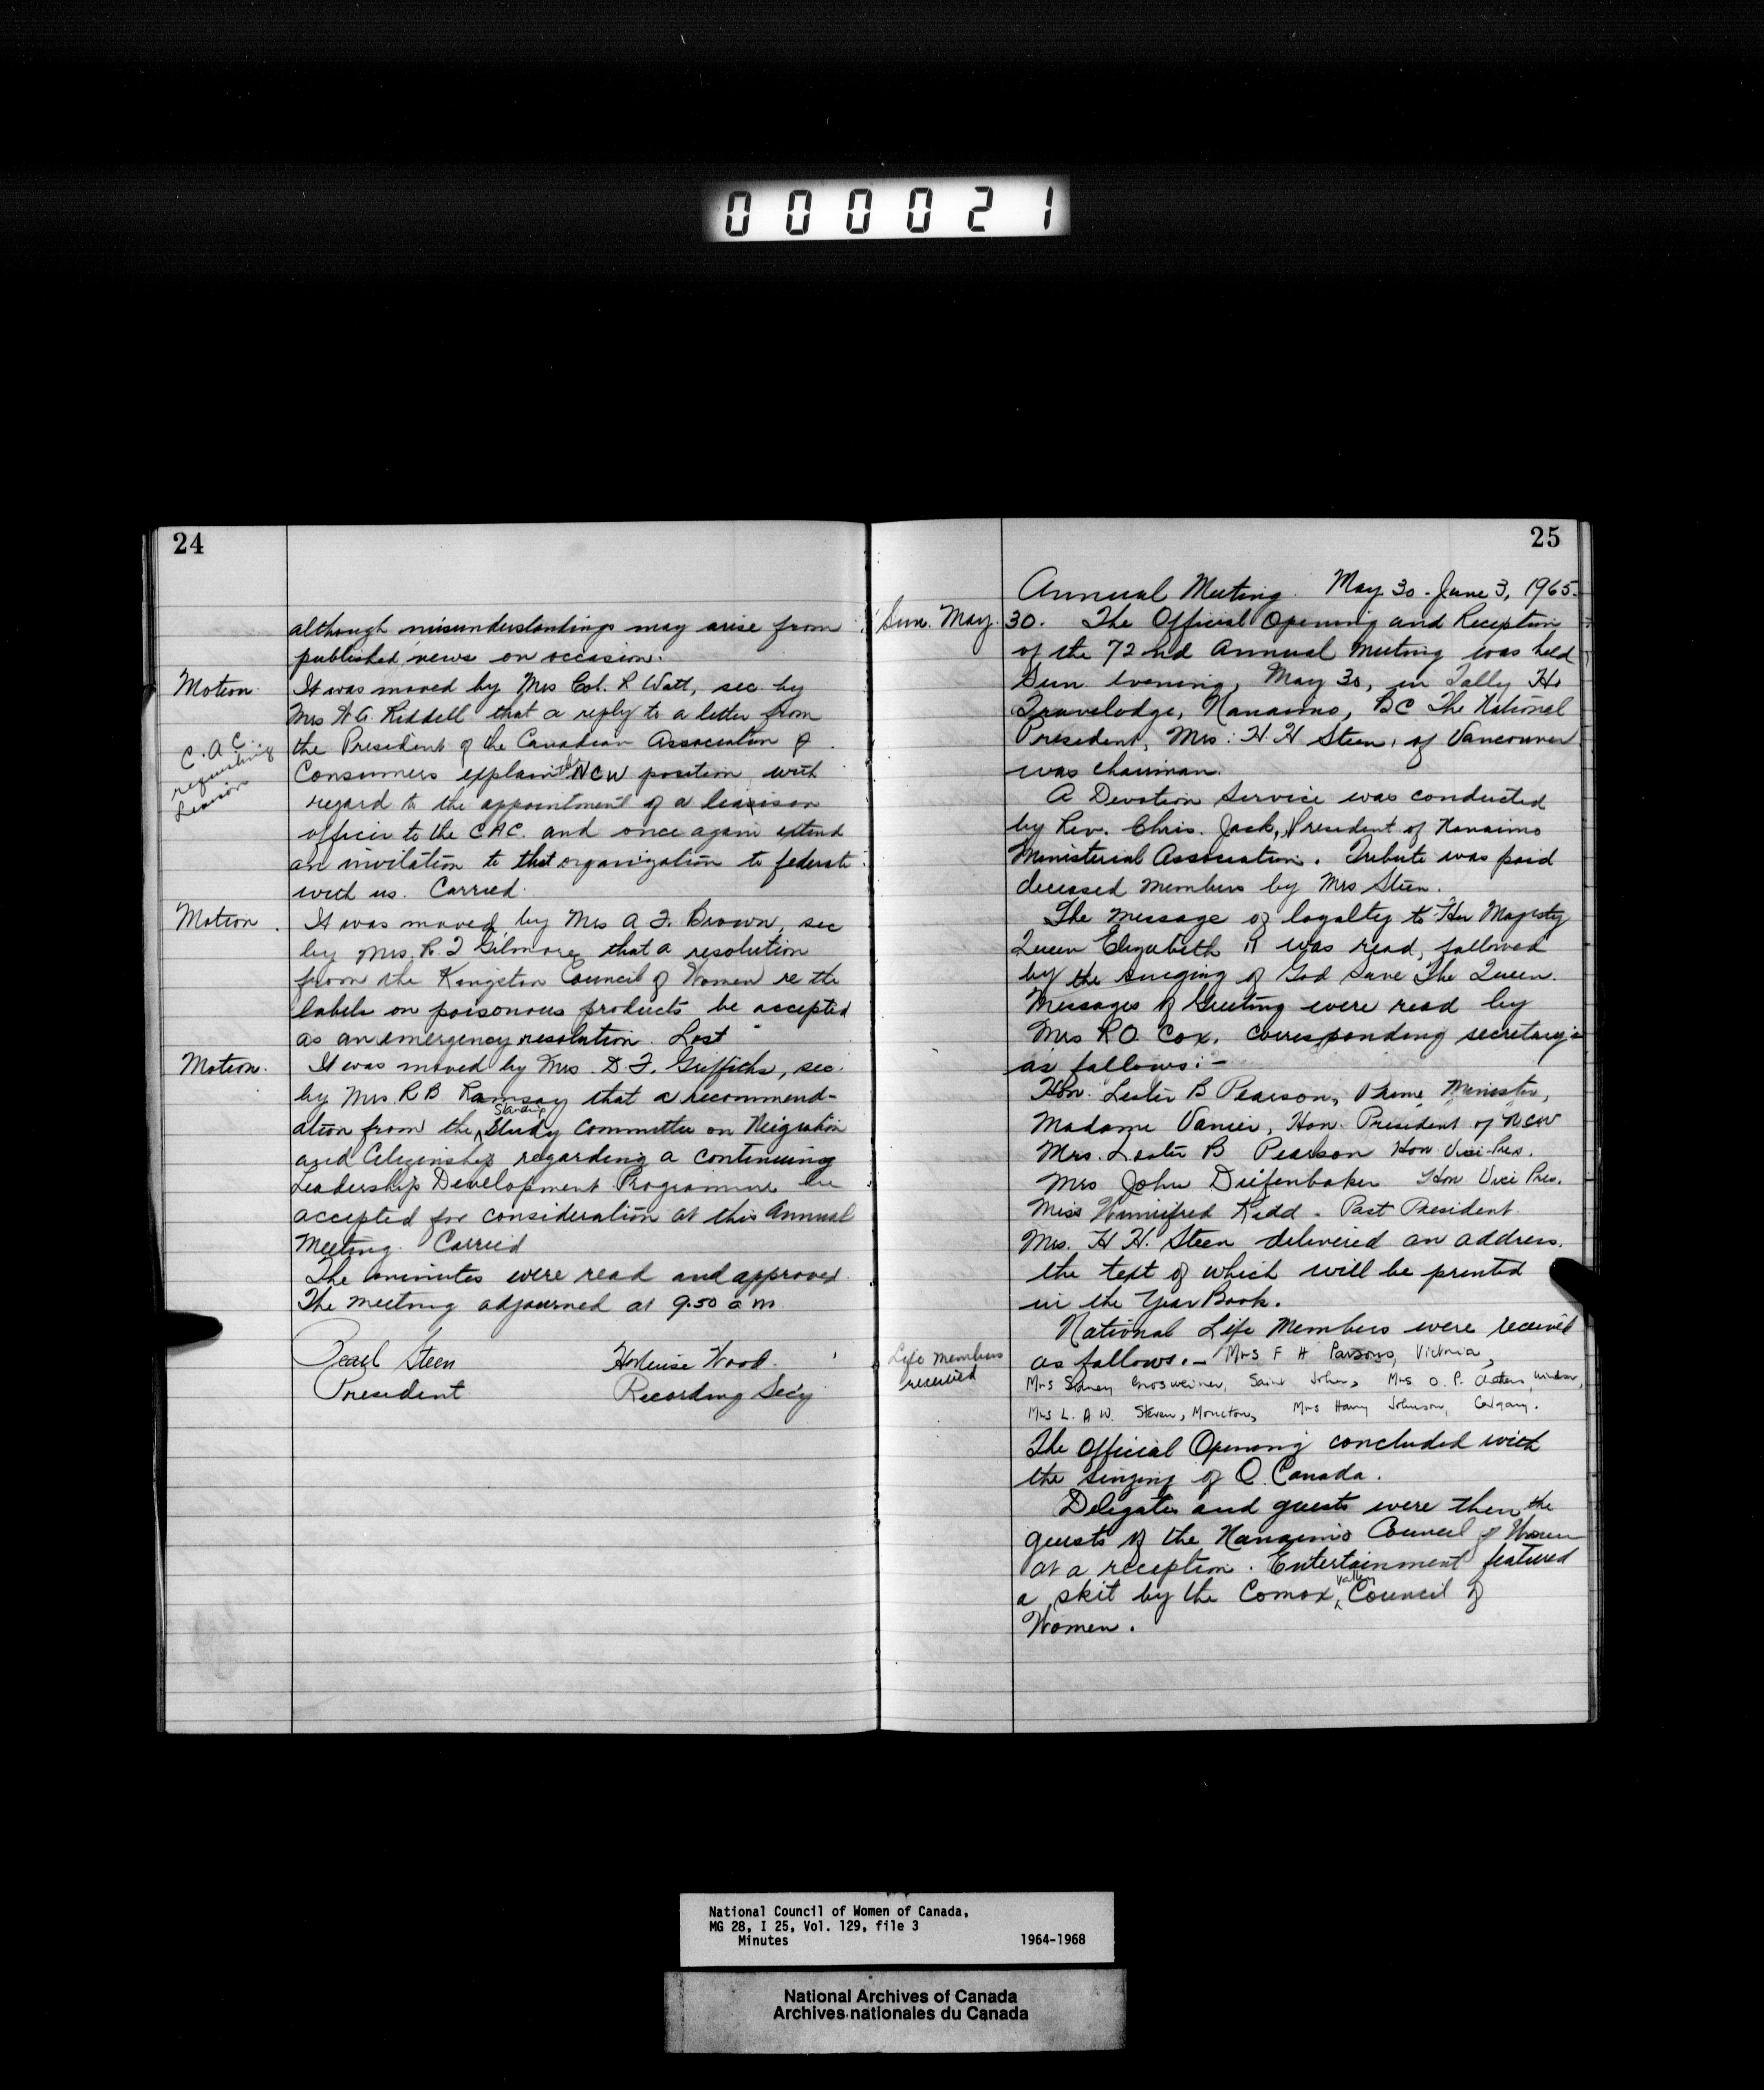 000021
24
although misunderstandings may arise from
published news on occasion.
Motion. It was moved by Mrs Col. R Watt, sec by
Mrs W.G. Riddell that a reply to a letter from
C.A.C. requesting Liaison
the President of the Canadian Association of
Consumers explain the NCW position with
regard to the appointment of a liaison
officer to the CAC. and once again extend
an invitation to that organization to federate
with us. Carried.
Motion. It was moved by Mrs A F. Brown, sec
by Mrs. R. J Gilmore that a resolution
from the Kingston Council of Women re the
labels on poisonous products be accepted
as an emergency resolution. Lost
Motion. It was moved by Mrs. D F. Griffiths, sec.
by Mrs. R B Ramsay that a recommend-
ation from the Standing Study Committee on Migration
and Citizenship regarding a continuing
Leadership Development Programme be
accepted for consideration at this Annual
Meeting. Carried
The minutes were read and approved.
The meeting adjourned at 9.50 a m.
Pearl Steen Hortense Wood.
President Recording Sec'y
25
Annual Meeting. May 30 - June 3, 1965.
Sun. May. 30. The Official Opening and Reception
of the 72nd Annual Meeting was held
Sun evening, May 30, in Tally Ho
Travelodge, Nanaimo, BC The National
President, Mrs. H. H Steen, of Vancouver
was chairman.
A Devotion Service was conducted
by Rev. Chris. Jack, President of Nanaimo
Ministerial Association. Tribute was paid
deceased members by Mrs Steen.
The message of loyalty to Her Majesty
Queen Elizabeth II was read, followed
by the singing of God Save The Queen.
Messages of Greeting were read by
Mrs R.O. Cox, corresponding secretary:
as follows:-
Hon. Lester B Pearson, Prime Minister,
Madame Vanier, Hon. President of NCW
Mrs. Lester B Pearson Hon Vice-Pres.
Mrs John Diefenbaker Hon Vice Pres.
Miss Winnifred Kydd - Past President.
Mrs. H H. Steen delivered an address,
the text of which will be printed
in the Year Book.
National Life Members were received
Life members received
as follows.- Mrs F H Parsons, Victoria,
Mrs Sidney Saint John, Mrs O. P. Windsor,
Mrs L. A W. Steven, Moncton, Mrs Harry Johnson, Calgary.
The Official Opening concluded with
the singing of O. Canada.
Delegates and guests were then the
guests of the Nanaimo Council of Women
at a reception. Entertainment featured
a skit by the Comox Valley Council of
Women.
National Council of Women of Canada,
MG 28, I 25, Vol. 129, file 3
Minutes 1964-1968
National Archives of Canada
Archives nationales du Canada